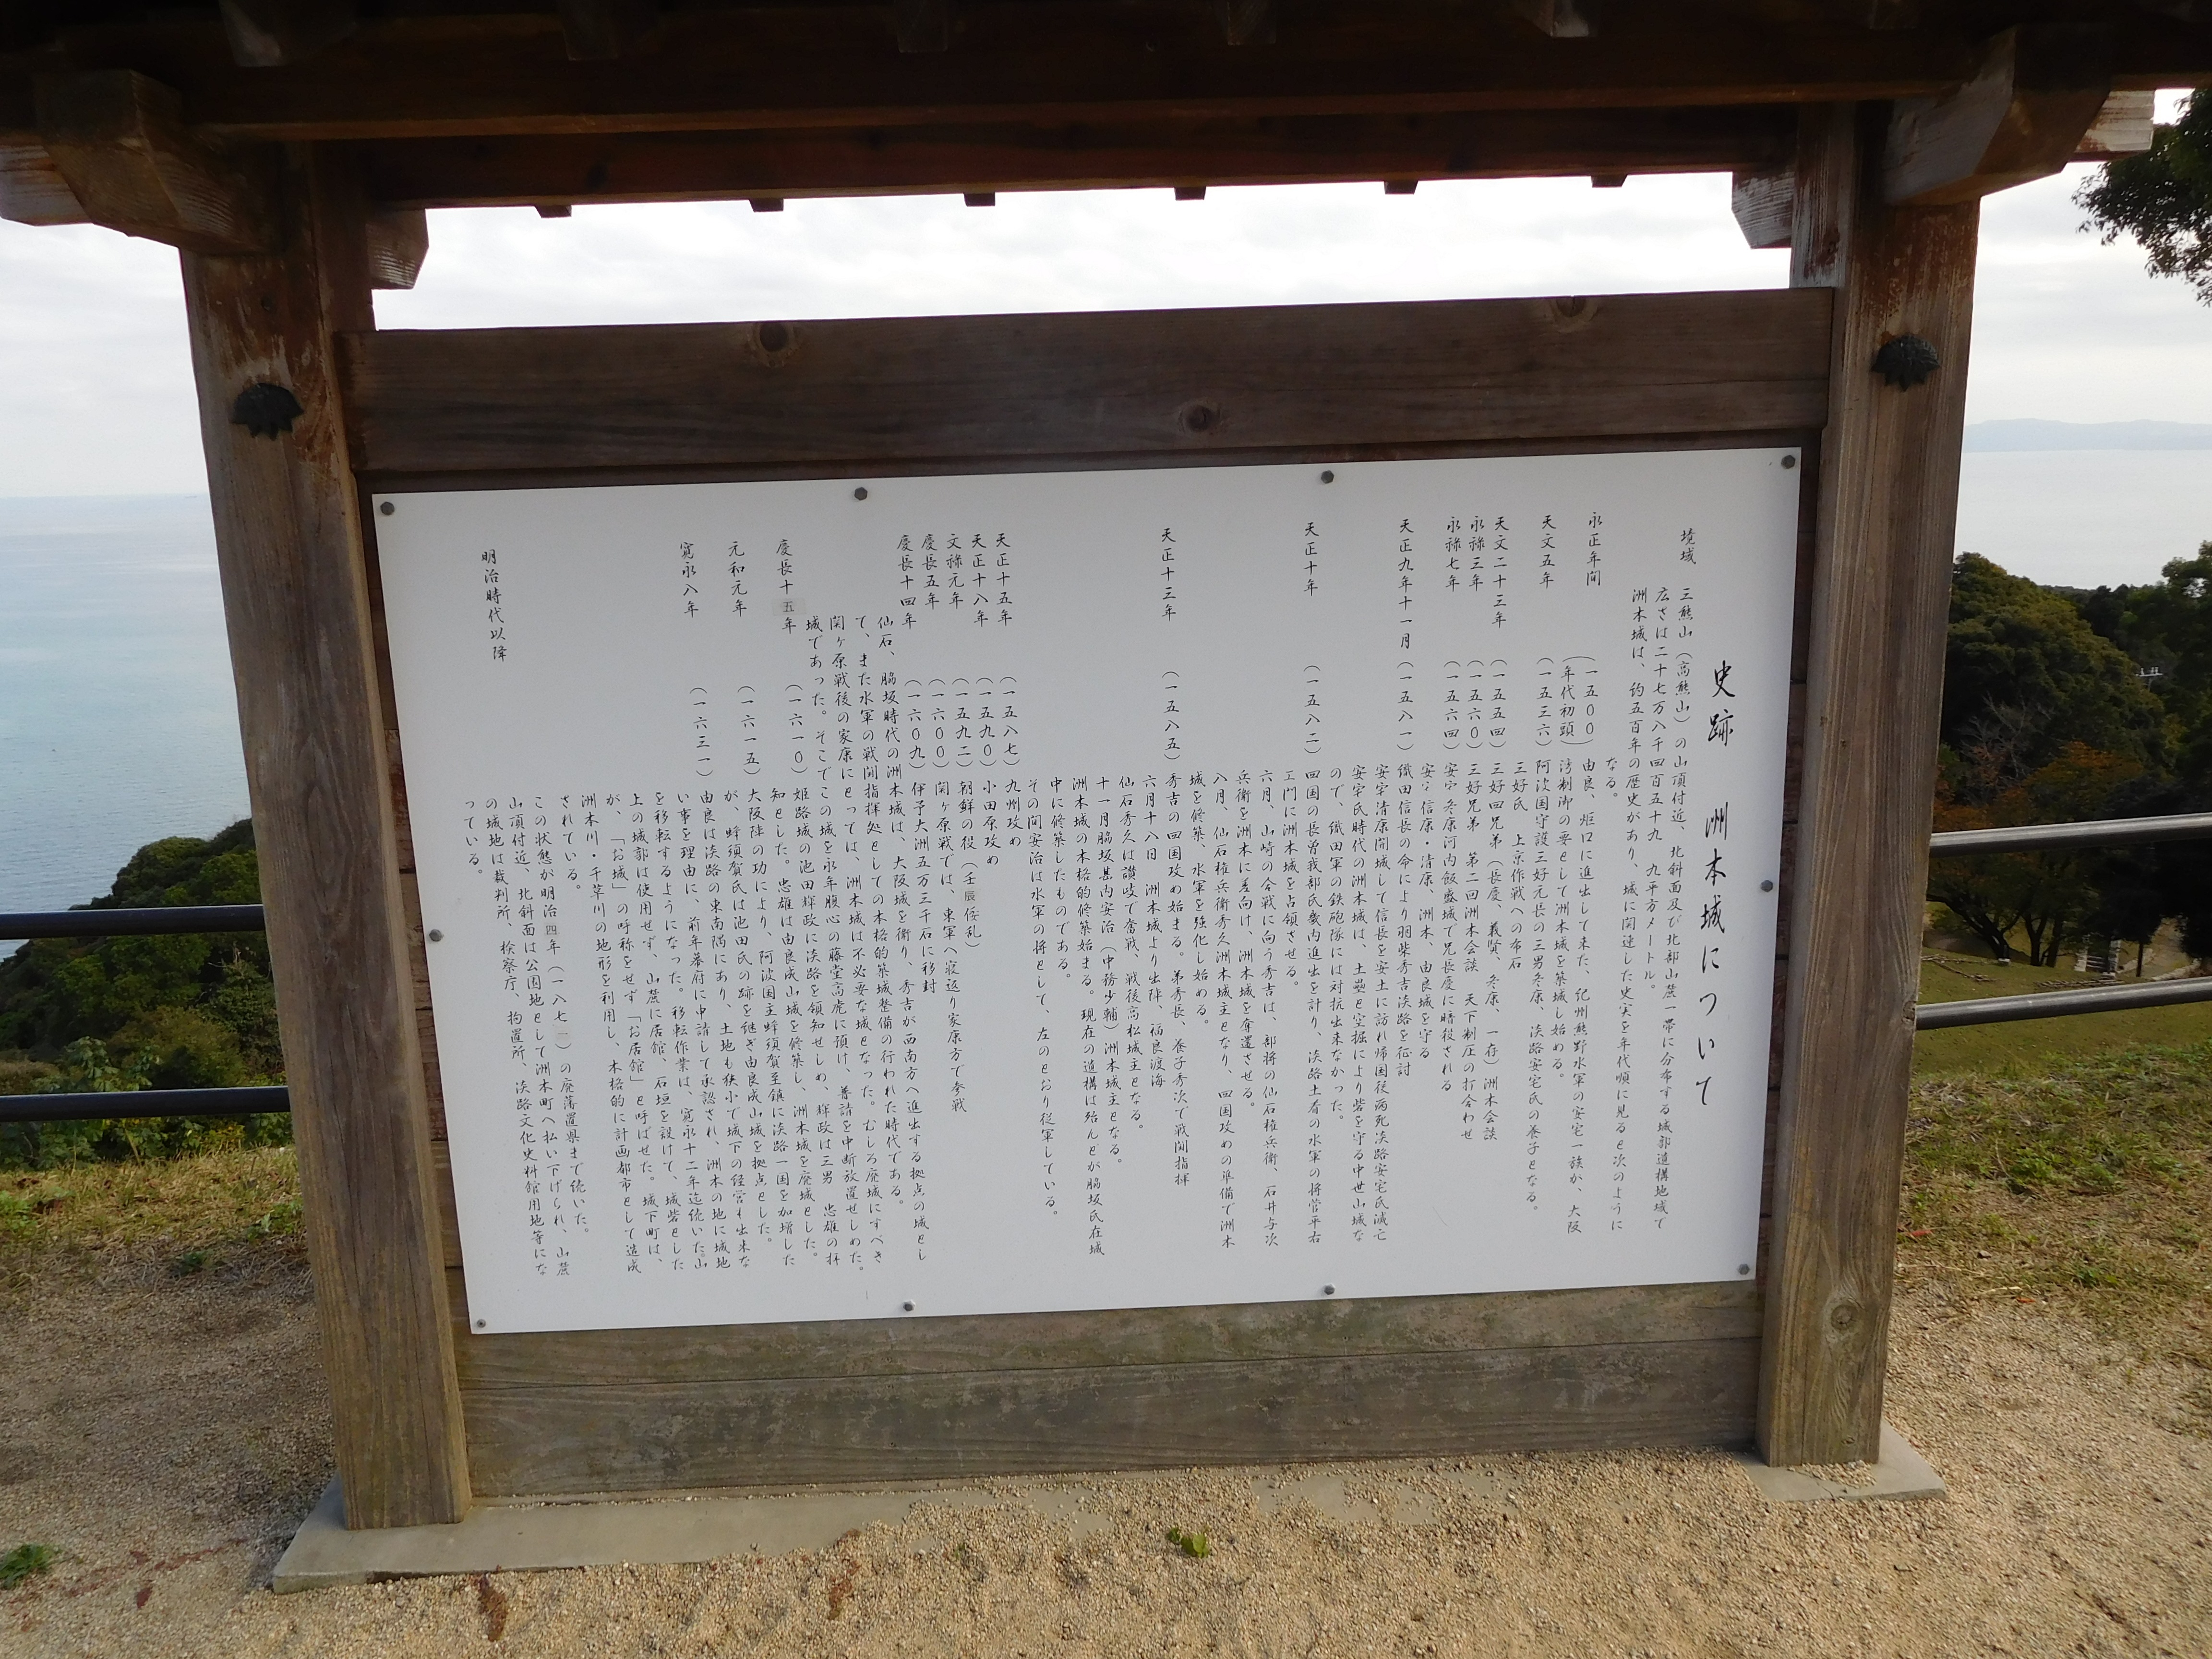 史跡 洲本城について
境域
三熊山(高熊山)の山頂付近、北斜面及び北部山麓一帯に分布する城郭遺構地域で
広さは二十七万八千四百五十九・九平方メートル。
洲本城は、約五百年の歴史があり、城に関連した史実を年代順に見ると次のように
なる。
永正年間 (一五〇〇) 由良、炬口に進出して来た、紀州熊野水軍の安宅一族が、大阪
(年代初頭) 湾制御の要として洲本城を築城し始める。
天文五年 (一五三六) 阿波国守護三好元長の三男冬康、淡路安宅氏の養子となる。
三好氏 上京作戦への布石
天文二十三年 (一五五四) 三好四兄弟(長慶、義賢、冬康、一存)洲本会談
永禄三年 (一五六〇) 三好兄弟 第二回洲本会談 天下制圧の打合わせ
永禄七年 (一五六四) 安宅冬康河内飯盛城で兄長慶に暗殺される
安宅信康・清康、洲本、由良城を守る
天正九年十一月 (一五八一) 織田信長の命により羽柴秀吉淡路を征討
安宅清康開城して信長を安土に訪れ帰国後病死淡路安宅氏滅亡
安宅氏時代の洲本城は、土塁と空掘により砦を守る中世山城な
ので、織田軍の鉄砲隊には対抗出来なかった。
天正十年 (一五八二) 四国の長曽我部氏畿内進出を計り、淡路土着の水軍の将菅平右
エ門に洲本城を占領させる。
六月、山崎の合戦に向う秀吉は、部将の仙石権兵衛、石井与次
兵衛を洲本に差向け、洲本城を奪還させる。
八月、仙石権兵衛秀久洲本城主となり、四国攻めの準備で洲本
城を修築、水軍を強化し始める。
天正十三年 (一五八五) 秀吉の四国攻め始まる。弟秀長、養子秀次で戦闘指揮
六月十八日 洲本城より出陣、福良渡海
仙石秀久は讃岐で奮戦、戦後高松城主となる。
十一月脇坂甚内安治(中務少輔)洲本城主となる。
洲本城の本格的修築始まる。現在の遺構は殆んどが脇坂氏在城
中に修築したものである。
その間安治は水軍の将として、左のとおり従軍している。
天正十五年 (一五八七) 九州攻め
天正十八年 (一五九〇) 小田原攻め
文禄元年 (一五九二) 朝鮮の役(壬辰倭乱)
慶長五年 (一六〇〇) 関ヶ原戦では、東軍へ寝返り家康方で参戦
慶長十四年 (一六〇九) 伊予大洲五万三千石に移封
仙石、脇坂時代の洲本城は、大阪城を衛り、秀吉が西南方へ進出する拠点の城とし
て、また水軍の戦闘指揮処としての本格的築城整備の行われた時代である。
関ヶ原戦後の家康にとっては、洲本城は不必要な城となった。むしろ廃城にすべき
城であった。そこでこの城を永年腹心の藤堂高虎に預け、普請を中断放置せしめた。
慶長十五年 (一六一〇) 姫路城の池田輝政に淡路を領知せしめ、輝政は三男 忠雄の拝
知とした。忠雄は由良成山城を修築し、洲本城を廃城とした。
元和元年 (一六一五) 大阪陣の功により、阿波国主蜂須賀至鎮に淡路一国を加増した
が、蜂須賀氏は池田氏の跡を継ぎ由良成山城を拠点とした。
寛永八年 (一六三一) 由良は淡路の東南隅にあり、土地も狭小で城下の経営も出来な
い事を理由に、前年幕府に申請して承認され、洲本の地に城地
を移転するようになった。移転作業は、寛永十二年迄続いた。山
上の城郭は使用せず、山麓に居館、石垣を設けて、城砦とした
が、「お城」の呼称をせず「お居館」と呼ばせた。城下町は、
洲本川・千草川の地形を利用し、本格的に計画都市として造成
されている。
明治時代以降
この状態が明治四年(一八七一)の廃藩置県まで続いた。
山頂付近、北斜面は公園地として洲本町へ払い下げられ、山麓
の城地は裁判所、検察庁、拘置所、淡路文化史料館用地等にな
っている。